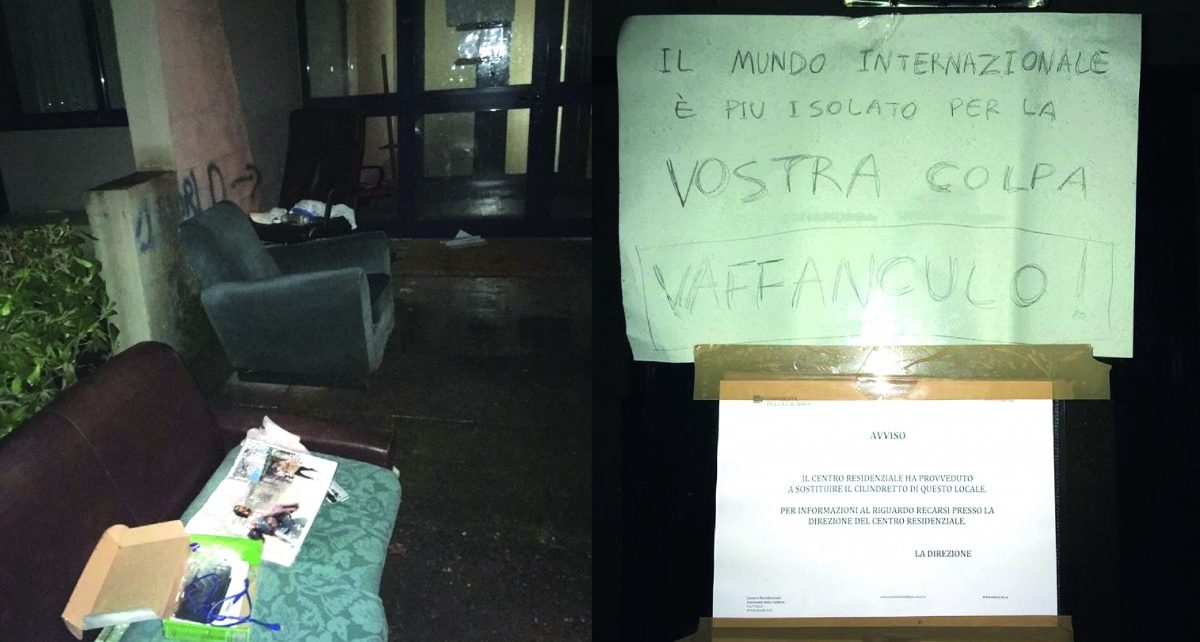 IL MUNDO INTERNAZIONALE
È PIU ISOLATO PER LA
VOSTRA COLPA
VAFFANCULO!
AVVISO
IL CENTRO RESIDENZIALE HA PROVVEDUTO
A SOSTITUIRE IL CILINDRETTO DI QUESTO LOCALE.
PER INFORMAZIONI AL RIGUARDO RECARSI PRESSO LA
DIREZIONE DEL CENTRO RESIDENZIALE.
LA DIREZIONE
Centro Residenziale